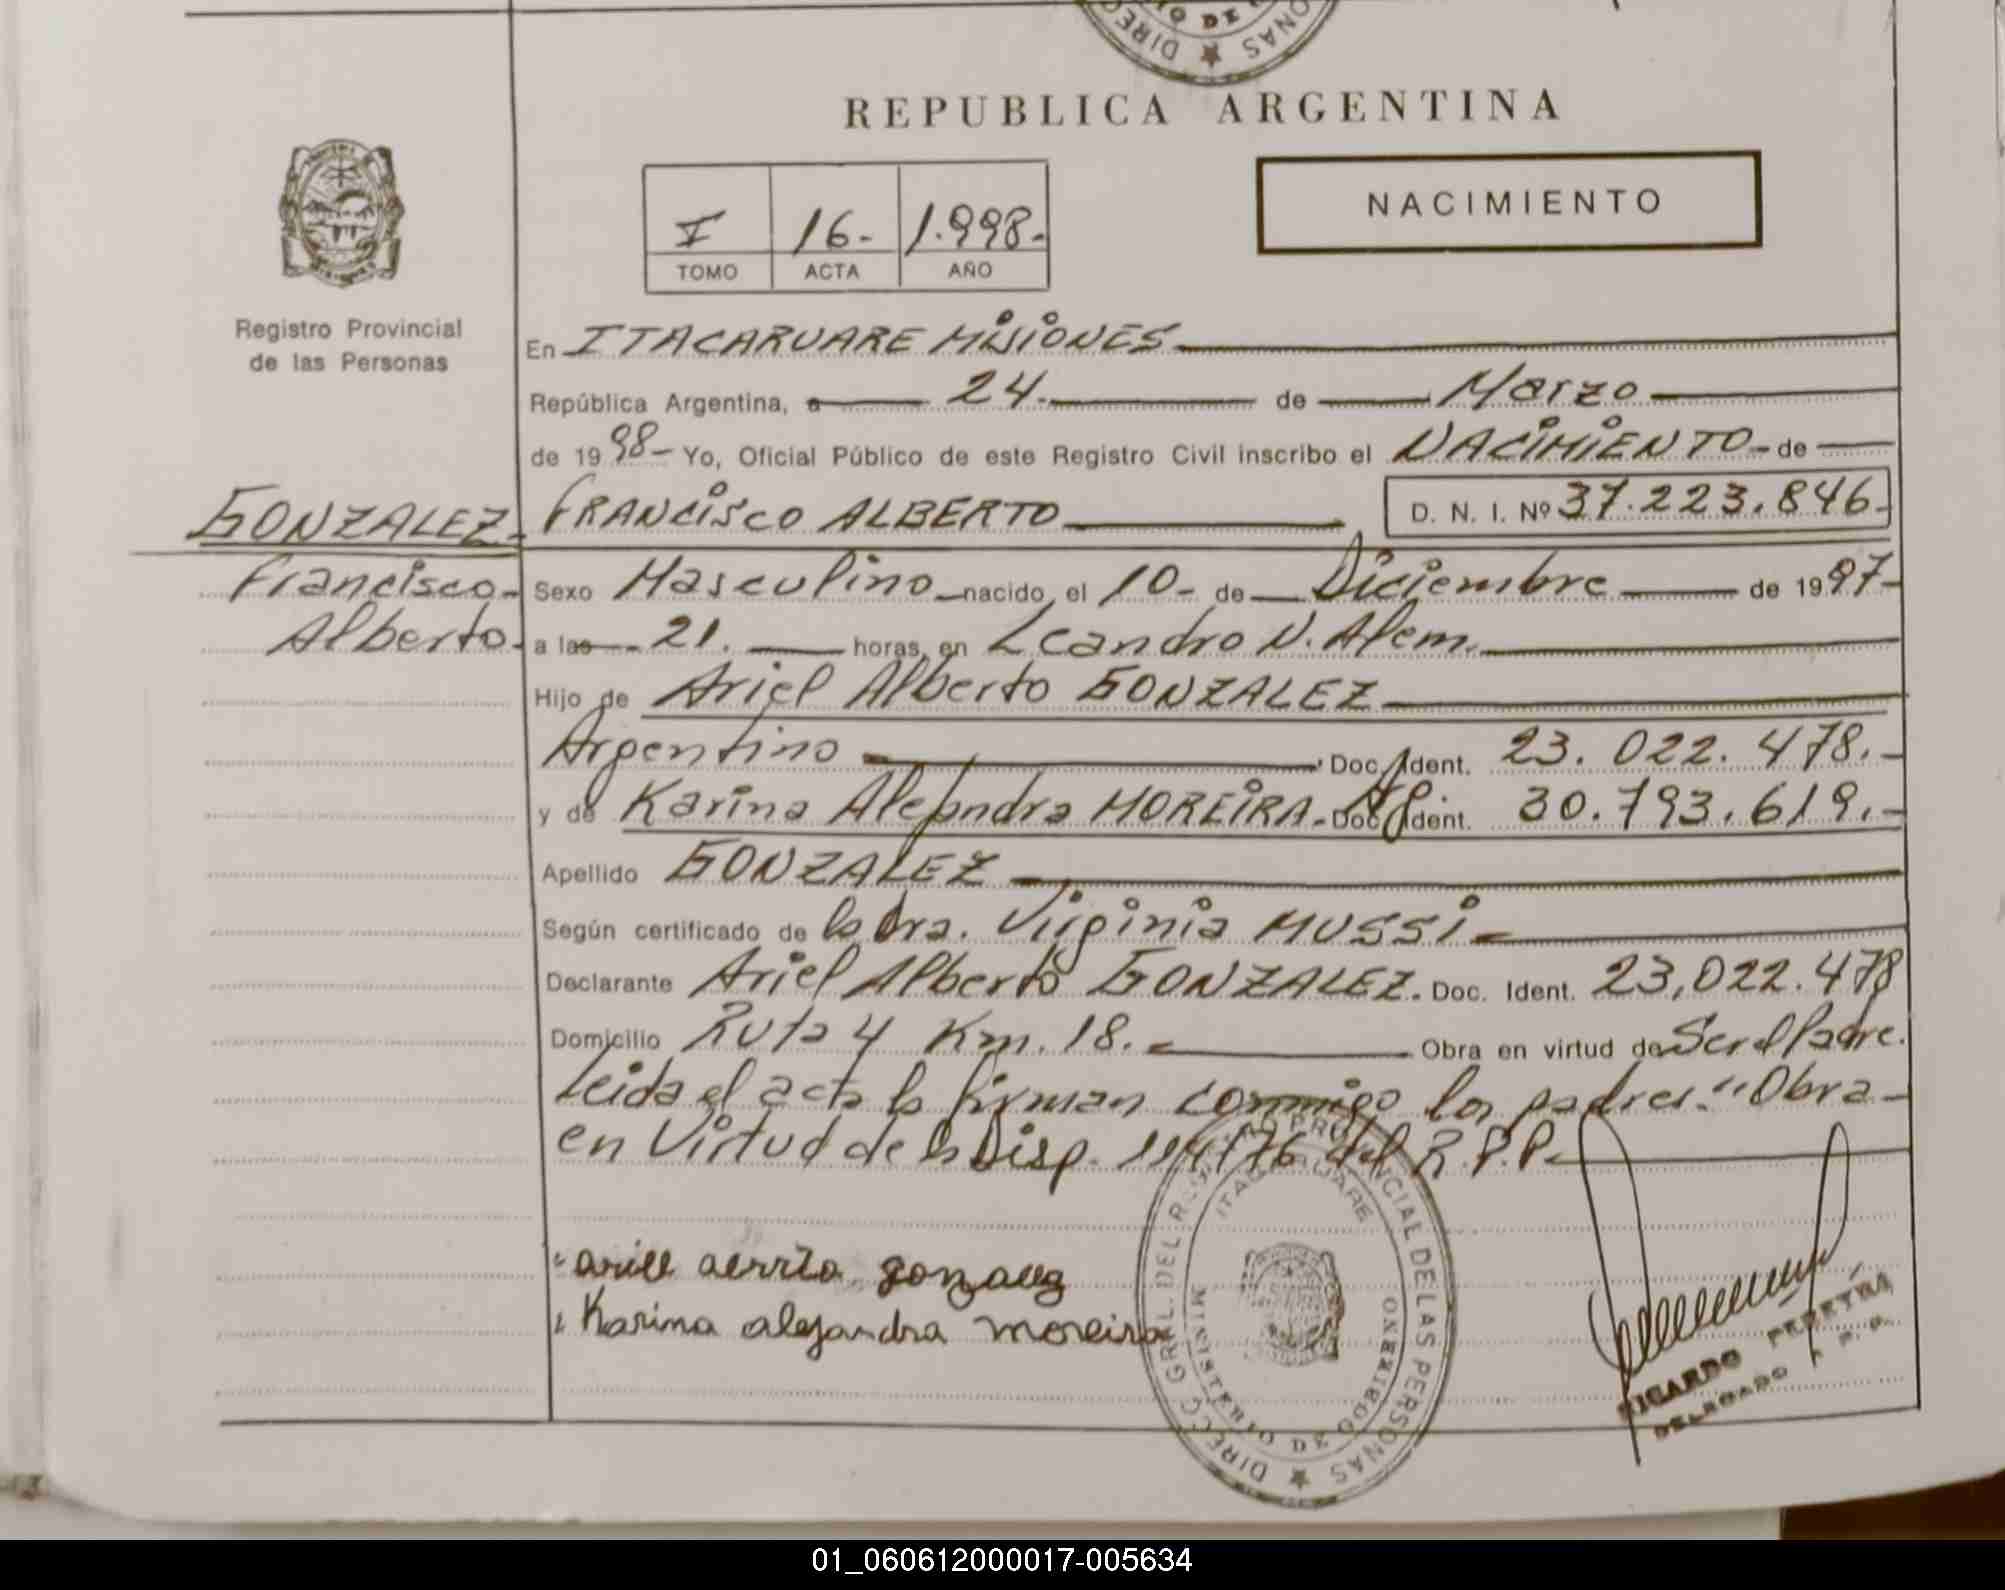 DIRECC
IO DE
ONAS
REPUBLICA ARGENTINA
NACIMIENTO
I 16- 1.998-
TOMO ACTA AÑO
Registro Provincial
de las Personas
En ITACARUARE MISIONES
República Argentina, a 24. de Marzo
de 1998- Yo, Oficial Público de este Registro Civil inscribo el NACIMIENTO- de
GONZALEZ- FRANCISCO ALBERTO D. N. I. Nº 37.223.846-
Francisco- Sexo Masculino nacido el 10- de Diciembre de 1997-
Alberto- a las 21. horas, en Leandro N. Alem.
Hijo de Ariel Alberto GONZALEZ
Argentino Doc. Ident. 23. 022. 478.-
y de Karina Alejandra MOREIRA- Doc. Ident. 30.793.619.-
Apellido GONZALEZ
Según certificado de la Dra. Virginia MUSSI
Declarante Ariel Alberto GONZALEZ. Doc. Ident. 23,022.478
Domicilio Ruta 4 Km. 18. Obra en virtud de Ser el Padre.
Leida el acta la firman conmigo los padres." Obra-
en Virtud de la Disp. 114/76 del R.P.P.
Karina alejandra moreira
DIRECC GRAL. DEL REG PROVINCIAL DE LAS PERSONAS
ITACARUARE
MINISTERIO DE GOBIERNO
RICARDO PEREYRA
DELEGADO R. P.
01_060612000017-005634